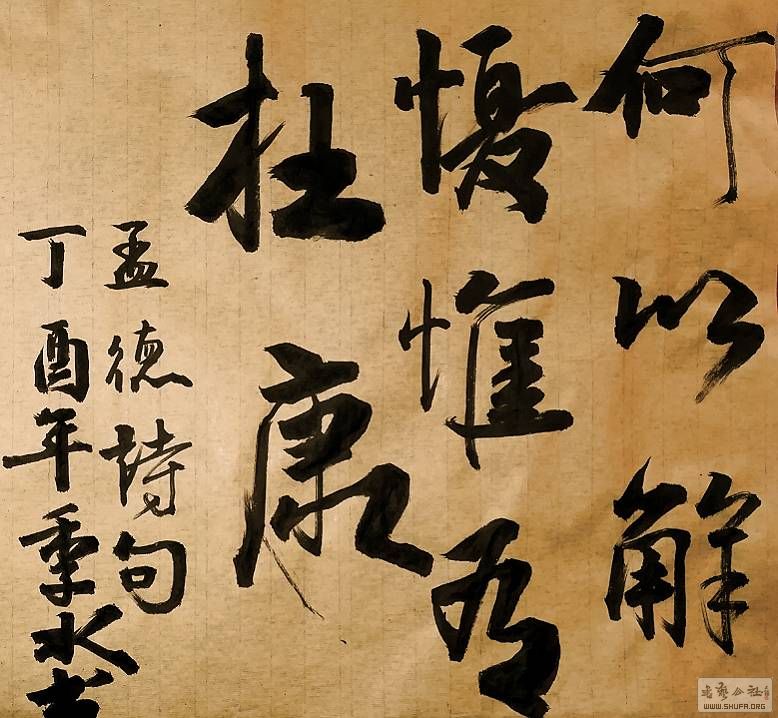 何以解
懮惟有
杜康
孟德詩句
丁酉年季水书
書藝公社
WWW.SHUFA.ORG